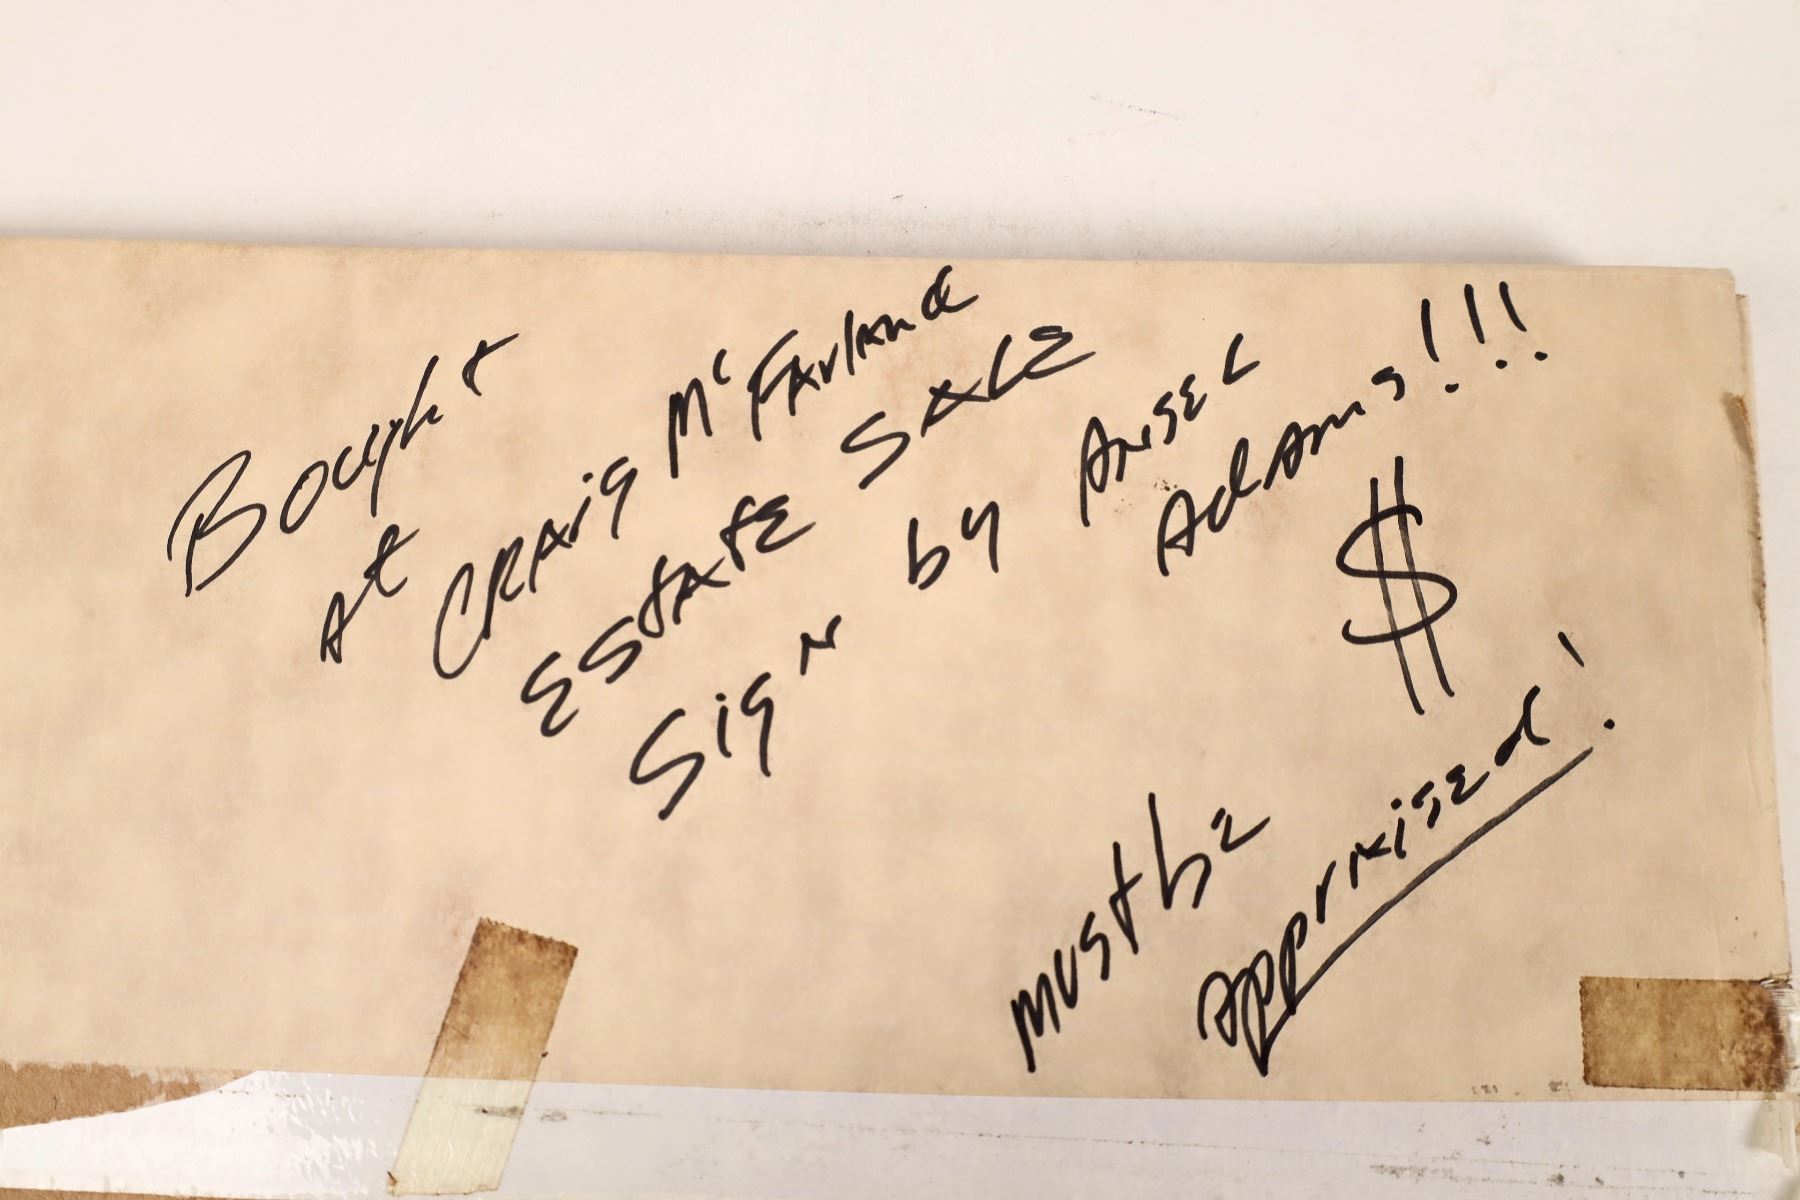 Bought
At CRAig McFArlAnd
EStAtE SALE
Sign by AnsEL
AdAms!!!
$
must be
Appraised!